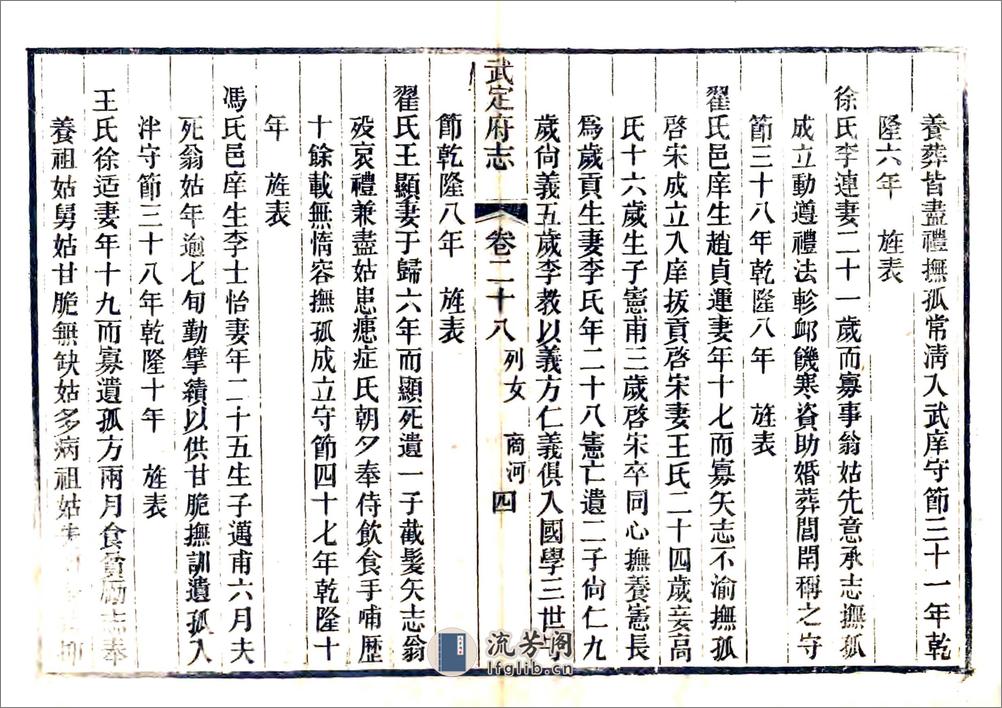 養葬皆盡禮撫孤常淸入武庠守節三十一年乾
隆六年　旌表
徐氏李連妻二十一歲而寡事翁姑先意承志撫孤
成立動遵禮法軫䘏饑寒資助婚葬閭閈稱之守
節三十八年乾隆八年　旌表
翟氏邑庠生趙貞運妻年十七而寡矢志不渝撫孤
啓宋成立入庠拔貢啓宋妻王氏二十四歲妾高
氏十六歲生子憲甫三歲啓宋卒同心撫養憲長
爲歲貢生妻李氏年二十八憲亡遺二子尙仁九
歲尙義五歲李教以義方仁義俱入國學三世
武定府志　卷二十八　列女　商河　四
節乾隆八年　旌表
翟氏王顯妻于歸六年而顯死遺一子截髮矢志翁
歿哀禮兼盡姑患瘧症氏朝夕奉侍飲食手哺歷
十餘載無惰容撫孤成立守節四十七年乾隆十
年　旌表
馮氏邑庠生李士怡妻年二十五生子邁甫六月夫
死翁姑年逾七旬勤擘績以供甘脆撫訓遺孤入
泮守節三十八年乾隆十年　旌表
王氏徐适妻年十九而寡遺孤方兩月食貧勵志奉
養祖姑舅姑甘脆無缺姑多病祖姑
流芳阁
lfglib.cn